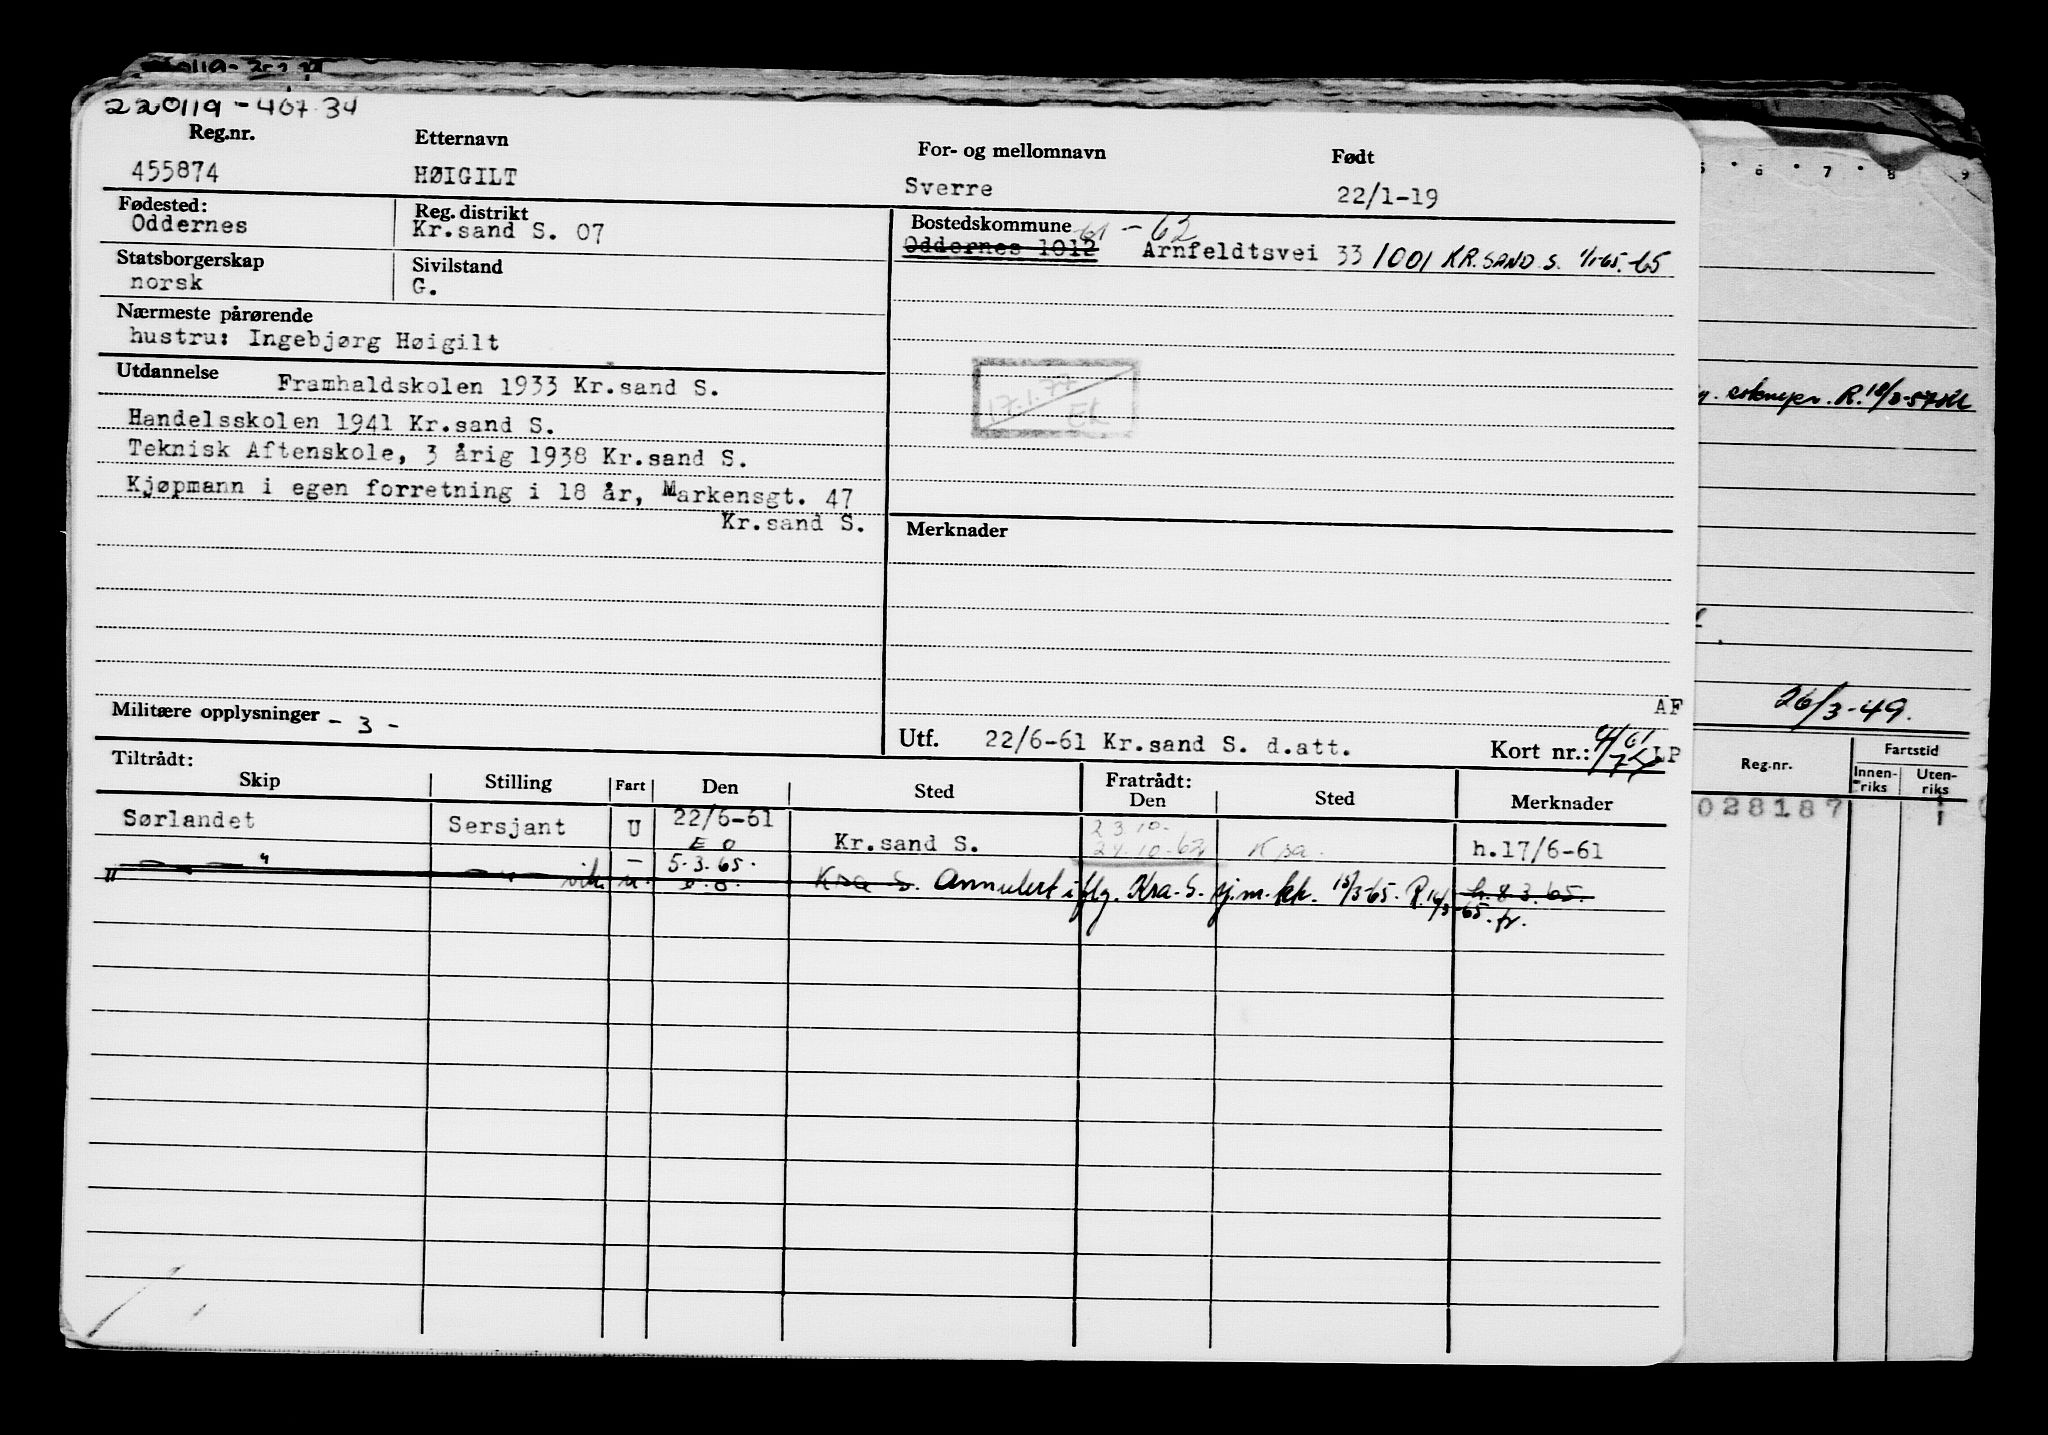 220119-407 34
Reg.nr. Etternavn For- og mellomnavn Født
455874 HØIGILT Sverre 22/1-19
Fødested: Reg. distrikt Bostedskommune 61 - 62
Oddernes Kr.sand S. 07 Oddernes 1012 Arnfeldtsvei 33 / 1001 KR.SAND S. 1/1-65. 65
Statsborgerskap Sivilstand
norsk G.
Nærmeste pårørende
hustru: Ingebjørg Høigilt
Utdannelse Framhaldskolen 1933 Kr.sand S.
17.1.77
EL
Handelsskolen 1941 Kr.sand S.
Teknisk Aftenskole, 3 årig 1938 Kr.sand S.
Kjøpmann i egen forretning i 18 år, Markensgt. 47
Kr.sand S.
Merknader
AF
Militære opplysninger - 3 -
Utf. 22/6-61 Kr.sand S. d.att. Kort nr.: LP
Tiltrådt: Fratrådt:
Skip Stilling Fart Den Sted Den Sted Merknader
Sørlandet Sersjant U 22/6-61 Kr.sand S. 23.10. h.17/6-61
E O 24.10-62 Ksa.
" " vik. u. 5.3.65. Krsa S. Annulert iflg. Krsa.S. sj.m.kk. 15/3-65. R.16/3-65. fr. h. 8.3.65.
5 6 7 8 9
R.18/3-57
26/3-49.
Reg.nr. Fartstid
Innen-riks Uten-riks
028187 1